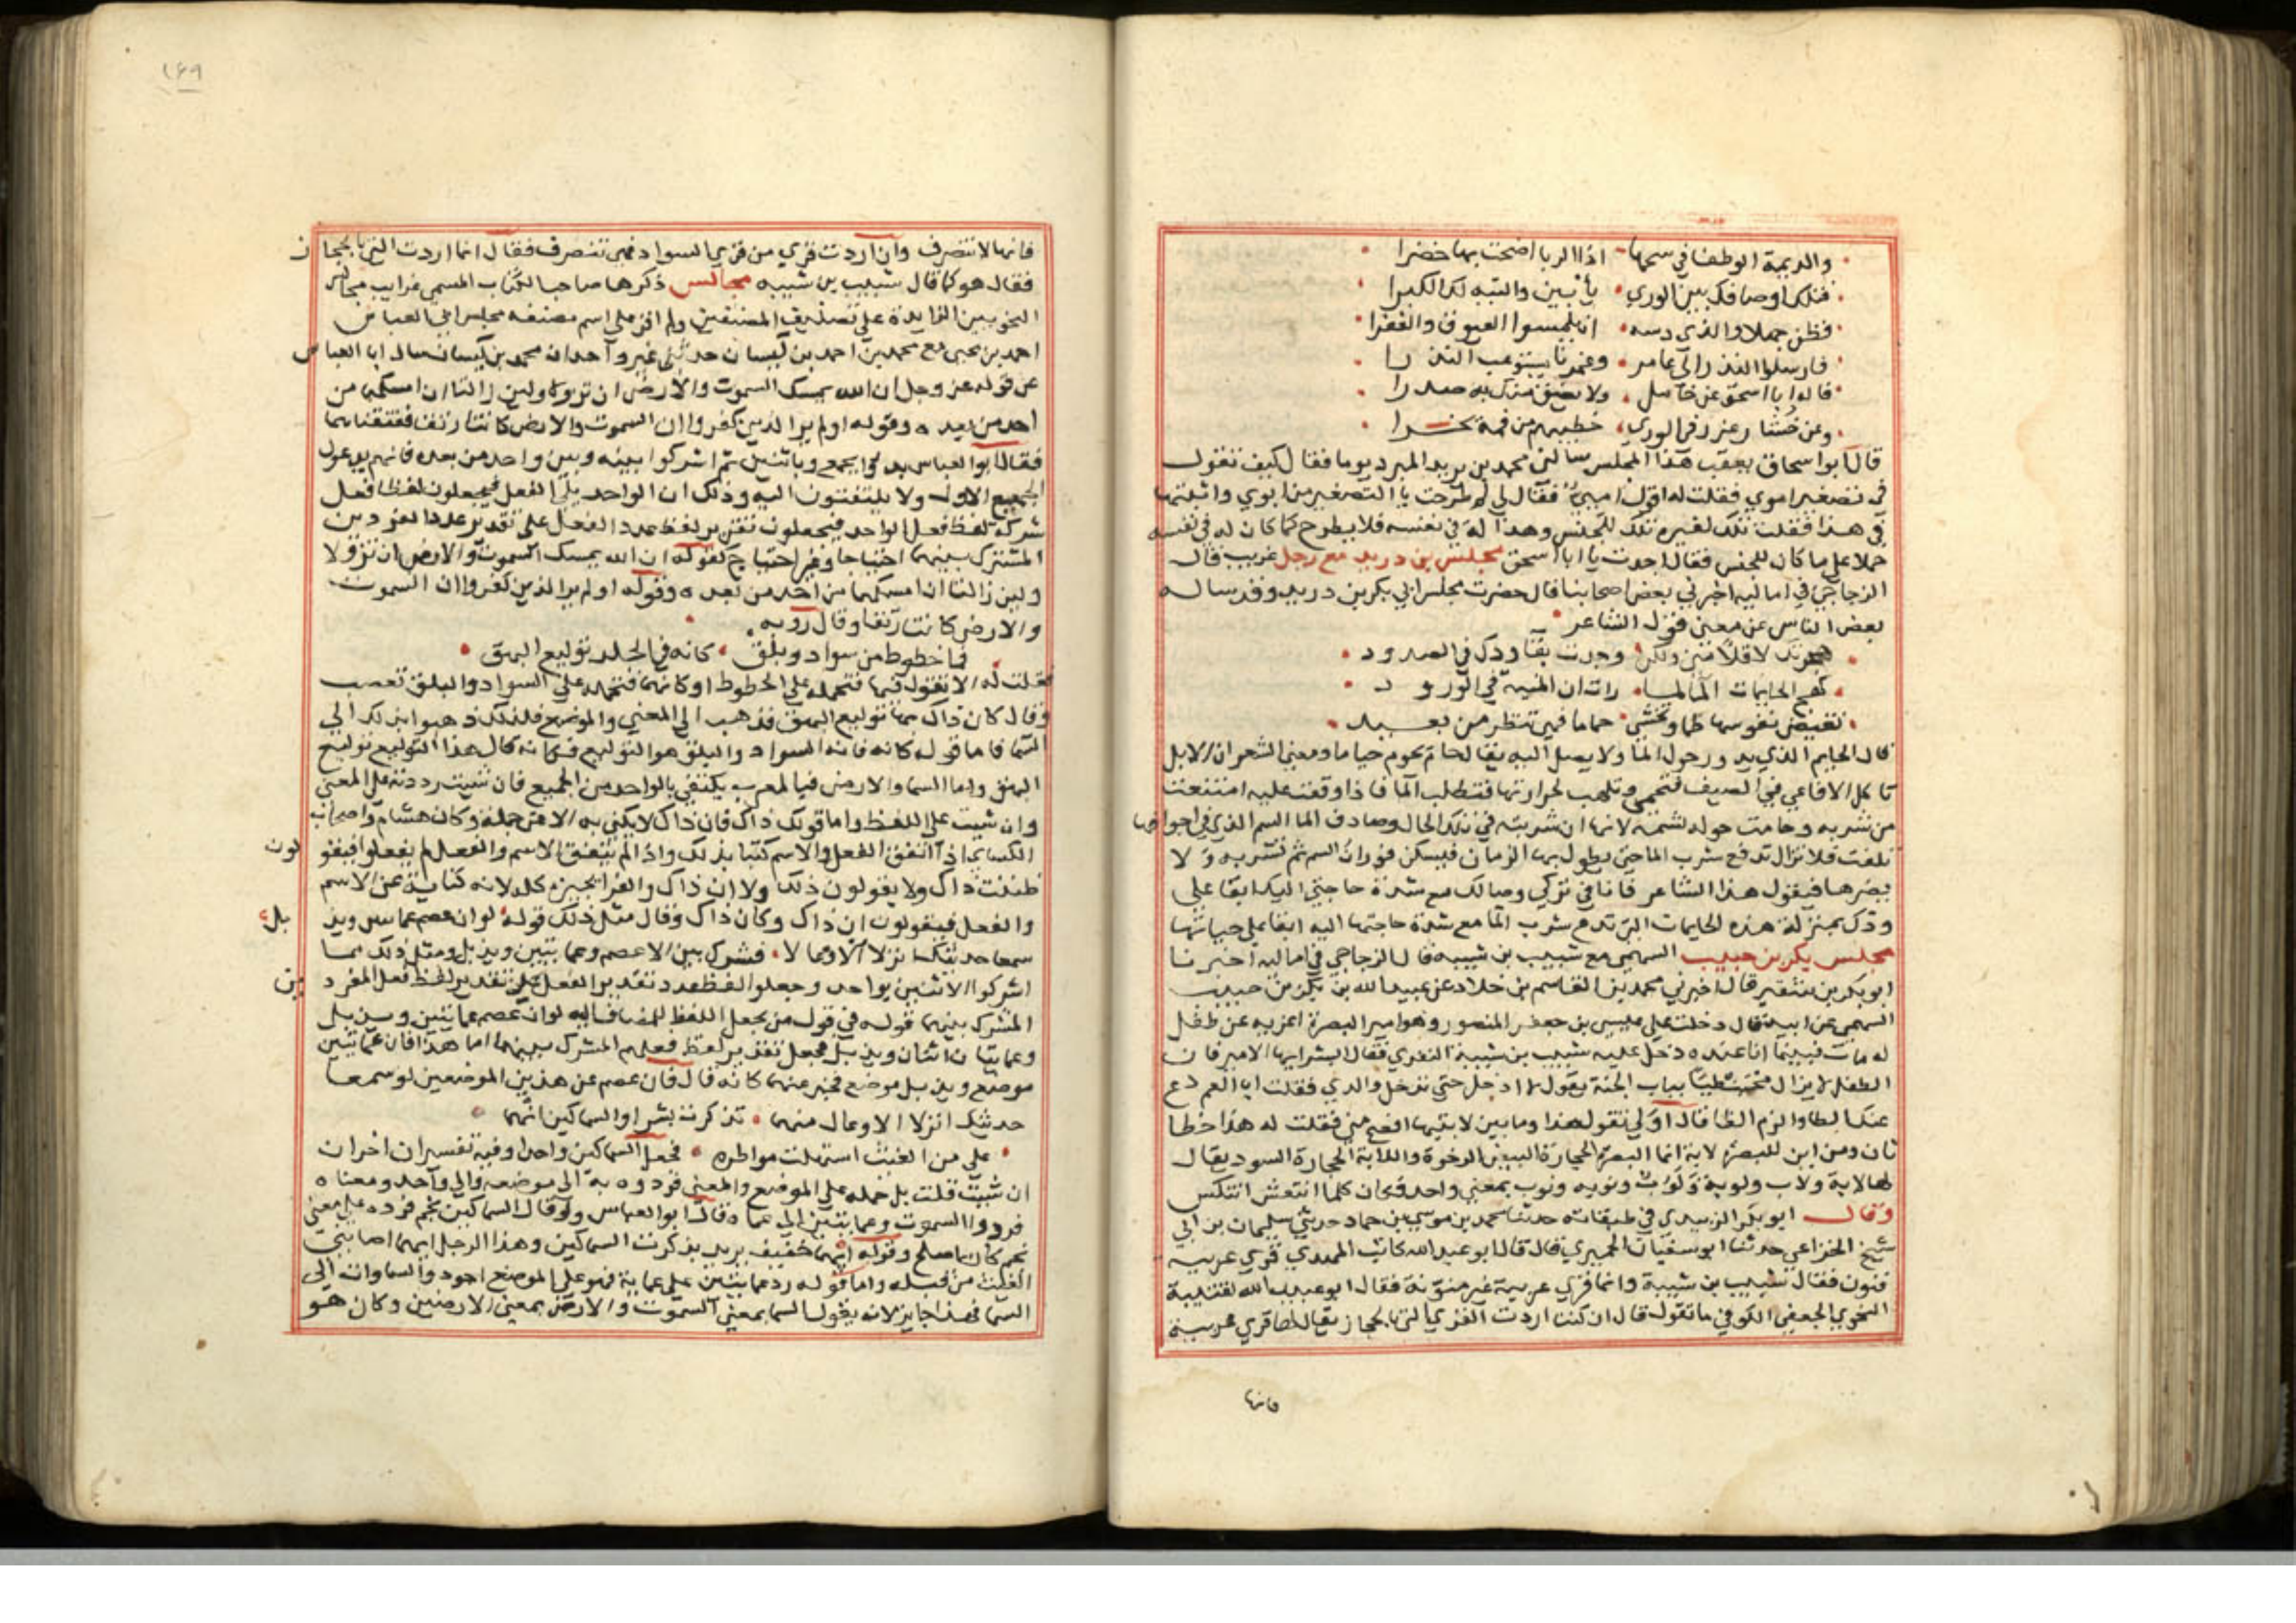 والديمة الوطفا في سحها اذا الربا اضحت بها خضرا
فتلك اوصافك بين الوري يأبين والتيه لك الكبرا
فظن جهلا والذي دسه ان يلمسوا العيوق والغفرا
فارسلوا النذر الى غامر وغمرنا يستوعب النذرا
قاله ابا اسحق عن خامل ولا تضق منك به صدرا
وعن خشار عرر في الوري خطيبهم من فمه يخرا
قال ابو اسحاق بعقب هذا المجلس سالني محمد بن يزيد المبرد يوما فقال كيف تقول
في تصغير اموي فقلت له اقول اميي فقال لي لم طرحت يا التصغير من اموي واثبتها
في هذا فقلت تلك لغيره تلك للجنس وهذا له في نفسه فلا يطرح كما كان له في نفسه
حملا على ما كان للجنس فقال اجدت يا ابا اسحق مجلس بن دريد مع رجل غريب قال
الزجاجي في اماليه اخبرني بعض اصحابنا قال حضرت مجلس ابي بكر بن دريد وقد ساله
بعض الناس عن معنى قول الشاعر
هجرتك لا قلا مني ولكن وجدت بقا ودك في الصدود
كهجر الحايمات الما لما رات ان المنية في الورود
تغيض نفوسها ظما وتخشى حماما فهي تنظر من بعيد
قال الحايم الذي يدور حول الما ولا يصل اليه يقال حام يحوم حياما ومعنى الشعر ان الابل
تاكل الافاعي في الصيف فتحمى وتلهب لحرارتها فتطلب الما فاذا وقفت عليه امتنعت
من شربه وحامت حوله تشمه لانها ان شربته في تلك الحال وصادف الما السم الذي في اجوافها
تلفت فلا تزال تدفع شرب الما حتى يطول بها الزمان فيسكن فوران السم ثم تشربه ولا
يضرها فيقول هذا الشاعر فانا في تركي وصالك مع شدة حاجتي اليك ابقا على
ودك بمنزلة هذه الحايمات التي تدع شرب الما مع شدة حاجتها اليه ابقا على حياتها
مجلس بكر بن حبيب السهمي مع شبيب بن شيبه قال الزجاجي في اماليه اخبرنا
ابو بكر بن شقير قال اخبرني محمد بن القاسم بن خلاد عن عبيد الله بن بكر بن حبيب
السهمي عن ابيه قال دخلت على عيسى بن جعفر المنصور وهو امير البصرة اعزيه عن طفل
له مات فبينما انا عنده دخل عليه شبيب بن شيبة المنقري فقال ابشر ايها الامير فان
الطفل لا يزال محبنطيا بباب الجنة يقول لا ادخل حتى تدخل والدي فقلت ابا المعمر دع
عنك الطا والزم الظا قال اولي تقول هذا وما بين لابتيها افصح مني فقلت له هذا خطا
ثان ومن اين للبصرة لابة انما البصرة الحجارة البيض الرخوة واللابة الحجارة السود يقال
لها لابة ولاب ولوبة ولوب ونوبه ونوب بمعنى واحد فكان كلما انتعش انتكس
وقال ابو بكر الزبيدي في طبقاته حدثنا محمد بن موسى بن حماد حدثني سليمان بن ابي
شيخ الخزاعي حدثنا ابو سفيان الحميري قال قال ابو عبيد الله كاتب المهدي قري عربيه
فنون فقال شبيب بن شيبة وانما قري عربية غير منونة فقال ابو عبيد الله لقتيبة
النحوي الجعفي الكوفي ما تقول قال ان كنت اردت القري التي بالحجاز يقال لها قري عربية
فانها
١٤٩
فانها لا تنصرف وان اردت قري من قري السواد فهي تنصرف فقال انما اردت التي بالحجاز
فقال هو كما قال شبيب بن شيبه مجالس ذكرها صاحب الكتاب المسمى غرايب مجالس
النحويين الزايدة على تصنيف المصنفين ولم اقف على اسم مصنفه مجلس ابي العباس
احمد بن يحيى مع محمد بن احمد بن كيسان حدثني غير واحد ان محمد بن كيسان سال ابا العباس
عن قوله عز وجل ان الله يمسك السموت والارض ان تزولا ولين زالتا ان امسكهما من
احد من بعده وقوله اولم ير الذين كفروا ان السموت والارض كانتا رتقا ففتقناهما
فقال ابو العباس بالجمع وباثنين ثم اشركوا بينه وبين واحد من بعده فانهم يدعون
الجميع الاول ولا يلتفتون اليه وذلك ان الواحد يلي الفعل فيجعلون لفظ فعل
شركة لفظ فعل الواحد فيجعلون تقدير لفظ عدد الفعل على تقدير عدد الفرد من
المشترك بينهما احتياجا وغير احتياج كقوله ان الله يمسك السموت والارض ان تزولا
ولين زالتا ان امسكهما من احد من بعده وقوله اولم ير الذين كفروا ان السموت
والارض كانتا رتقا وقال روبه
فيها خطوط من سواد وبلق كانه في الجلد توليع البهق
فقلت له الا تقول فيها فتحمله على الخطوط او كانهما فتحمله على السواد والبلق فغضب
وقال كان ذاك بها توليع البهق فذهب الى المعنى والموضع فلذلك ذهبوا بذلك الي
السما فاما قوله كانه فانه السواد والبلق هو التوليع فكانه قال هذا التوليع توليع
البهق واما السما والارض فيا لعرب يكتفى بالواحد من الجميع فان شيت رددته على المعنى
وان شيت على اللفظ واما قولك ذاك فان ذاك لا يكنى به الا عن جملة وكان هشام واصحاب
الكسائي اذا اتفق الفعل والاسم كنتا بذلك واذا لم يتفق الاسم والفعل لم يفعلوا فيقولون
ظننت ذاك ولا يقولون ذلك ولا ان ذاك والفرا يجيزه كله لانه كناية عن الاسم
والفعل فيقولون ان ذاك وكان ذاك وقال مثل ذلك قوله لو ان عصم عمايتين ويذبل
سمعا حديثك انزلا الاوعالا فشرك بين الاعصم وعمايتين ويذبل ومثل ذلك مما
اشركوا الاثنين بواحد وجعلوا لفظ عدد تقدير الفعل على تقدير لفظ فعل المفرد من
المشترك بينهما قوله في قول من يجعل اللفظ للمضاف اليه لو ان عصم عمايتين ويذبل
وعمايتان اثنان ويذبل فجعل تقدير لفظ فعلهم المشترك بينهما اما هذا فان عمايتين
موضع ويذبل موضع فخبر عنهما كانه قال فان عصم عن هذين الموضعين لو سمعا
حديثك انزلا الاوعال منهما تذكرت بشرا والسماكين ايهما
على من الغيث استهلت مواطره فجعل السماكين واحدا وفيه تفسيران اخران
ان شيت قلت بل حمله على الموضع والمعنى فردوه به الى موضعه والى واحد ومعناه
فردوا السموت وعمايتين الى عماه قال ابو العباس ولو قال السماكين نجم فرده على معنى
نجم كان ما صلح وقوله ايهما خفيف يريد بذكرت السماكين وهذا الرجل ايهما اصابني
الغيث من قبله واما قوله رد عمايتين على عماية فهو على الموضع اجود والسماوات الي
السما فهذا جايز لانه يقول السما بمعنى السموت والارض بمعنى الارضين وكان هو